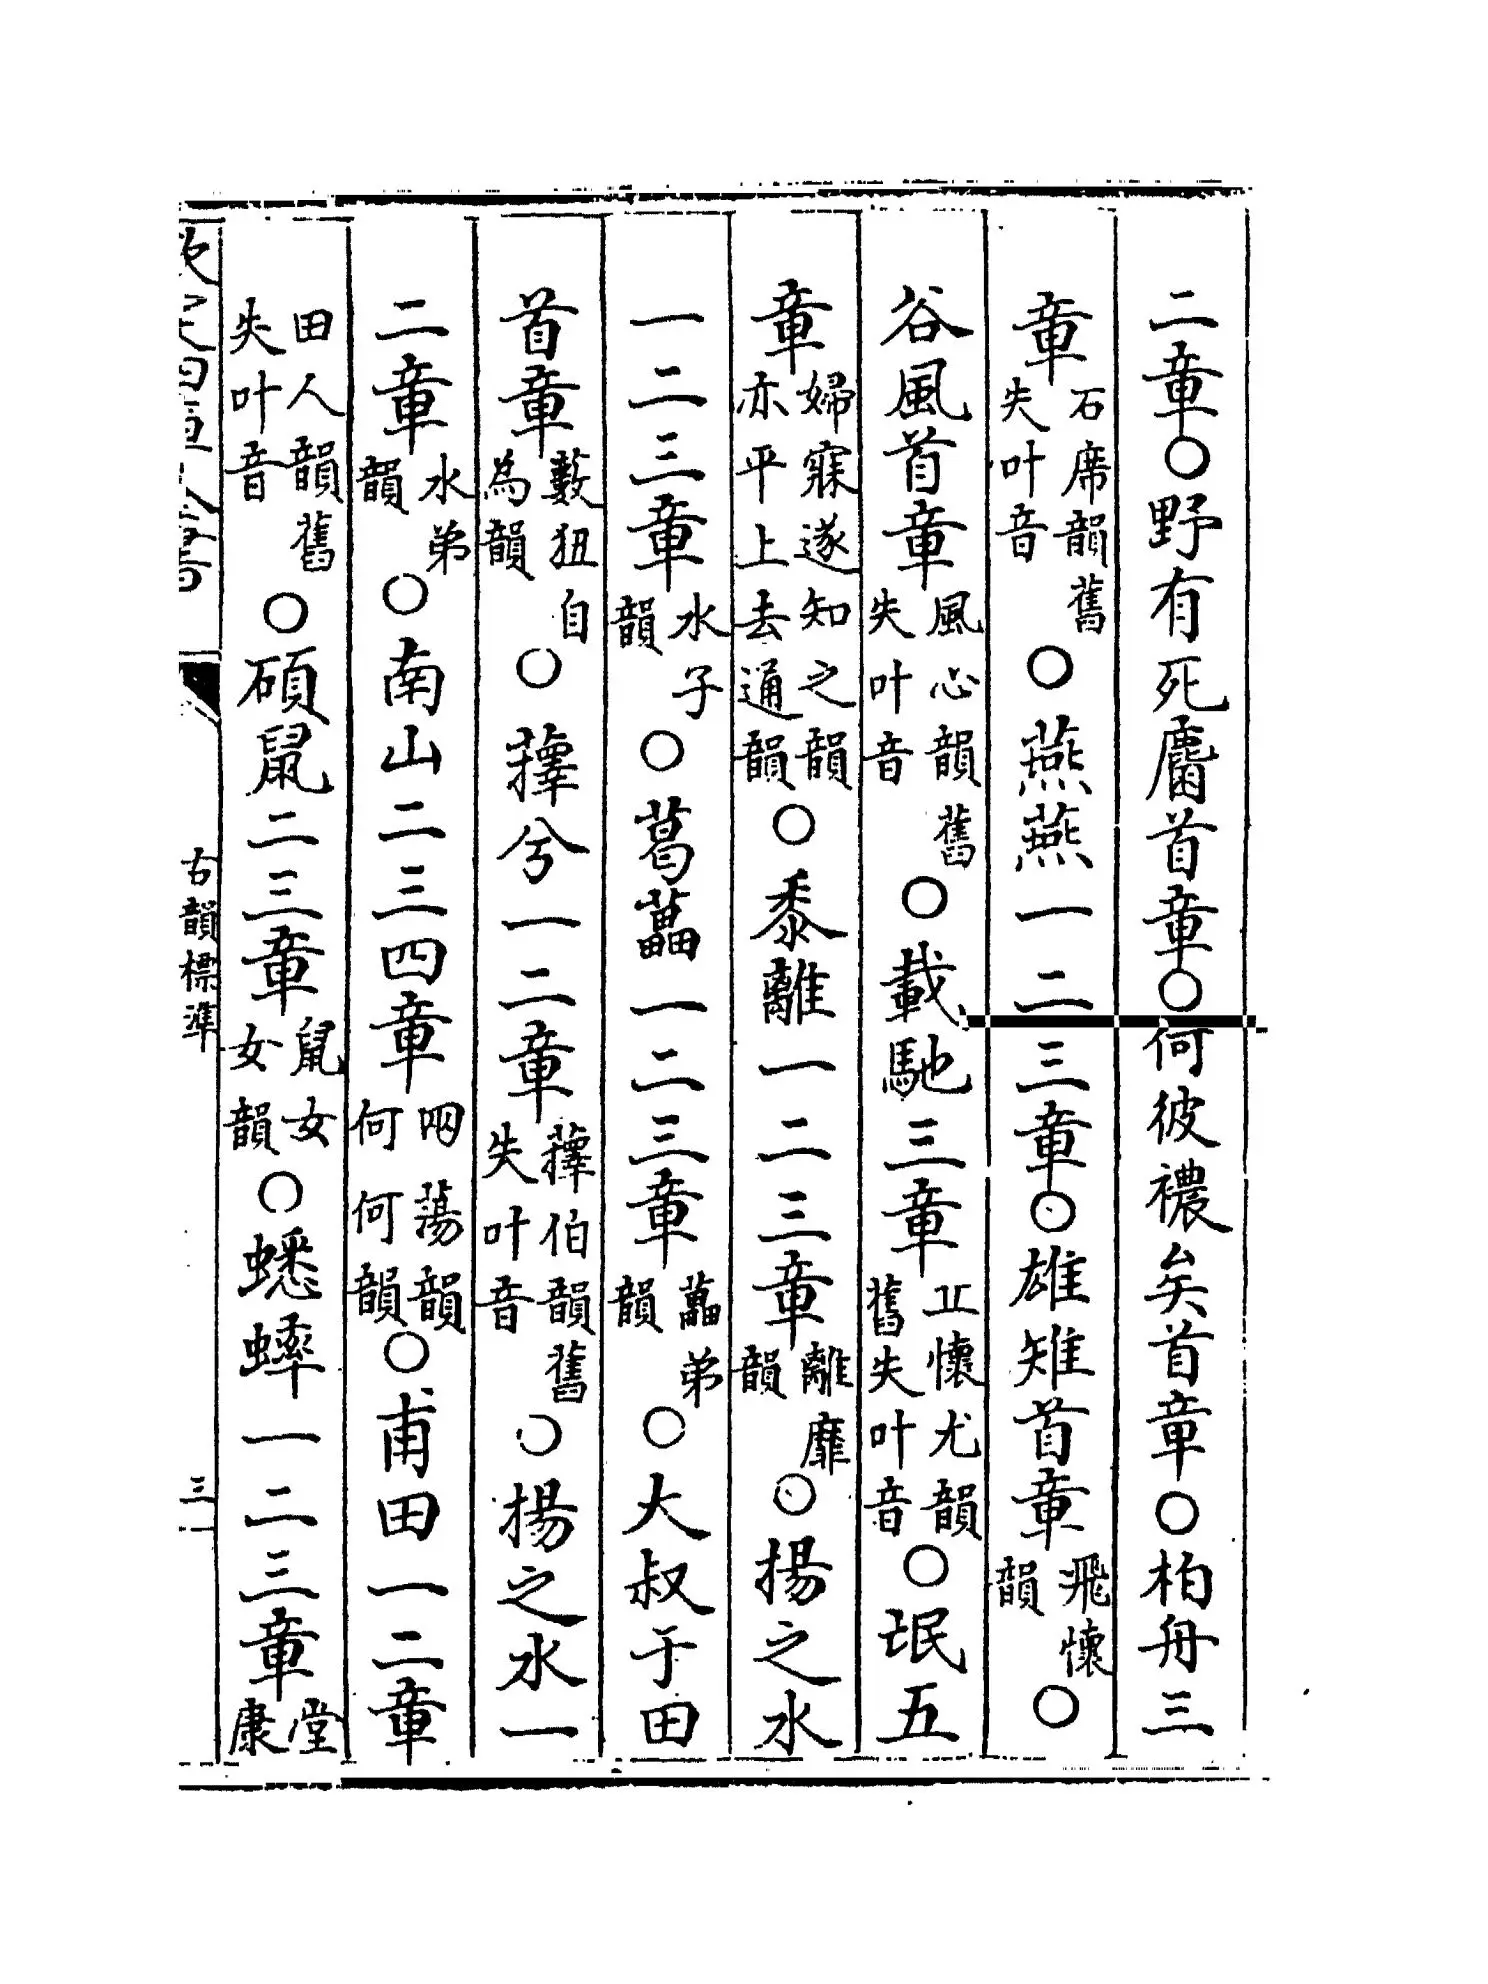 二章〇野有死麕首章〇何彼襛矣首章〇柏舟三
章石席韻舊失叶音〇燕燕一二三章〇雄雉首章飛懷韻〇
谷風首章風心韻舊失叶音〇載馳三章丘懷尤韻舊失叶音〇氓五
章婦寐遂知之韻亦平上去通韻〇黍離一二三章離靡韻〇揚之水
一二三章水子韻〇葛藟一二三章藟弟韻〇大叔于田
首章藪狃自為韻〇蘀兮一二章蘀伯韻舊失叶音〇揚之水一
二章水弟韻〇南山二三四章兩蕩韻何何韻〇甫田一二章
田人韻舊失叶音〇碩鼠二三章鼠女女韻〇蟋蟀一二三章堂康
欽定四庫全書 古韻標準 三